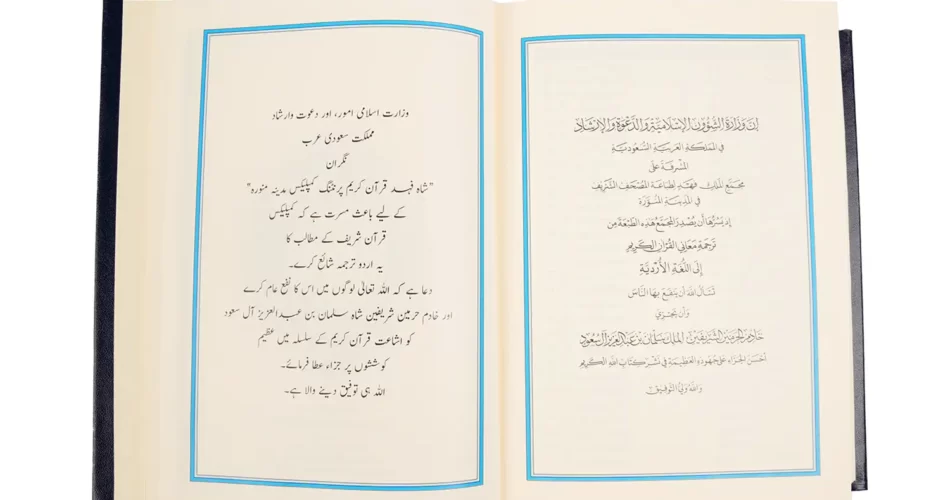 إن وزارة الشؤون الإسلامية والدعوة والإرشاد
في المملكة العربية السعودية
المشرفة على
مجمع الملك فهد لطباعة المصحف الشريف
في المدينة المنورة
إذ يسرها أن يصدر المجمع هذه الطبعة من
ترجمة معاني القرآن الكريم
إلى اللغة الأردية
تسأل الله أن ينفع بها الناس
وأن يجزي
خادم الحرمين الشريفين الملك سلمان بن عبد العزيز آل سعود
أحسن الجزاء على جهوده العظيمة في نشر كتاب الله الكريم
والله ولي التوفيق
وزارت اسلامی امور، اور دعوت وارشاد
مملکت سعودی عرب
نگران
"شاہ فہد قرآن کریم پرنٹنگ کمپلیکس مدینہ منورہ"
کے لیے باعث مسرت ہے کہ کمپلیکس
قرآن شریف کے مطالب کا
یہ اردو ترجمہ شائع کرے۔
دعا ہے کہ اللہ تعالی لوگوں میں اس کا نفع عام کرے
اور خادم حرمین شریفین شاہ سلمان بن عبدالعزیز آل سعود
کو اشاعت قرآن کریم کے سلسلہ میں عظیم
کوششوں پر جزاء عطا فرمائے۔
اللہ ہی توفیق دینے والا ہے۔